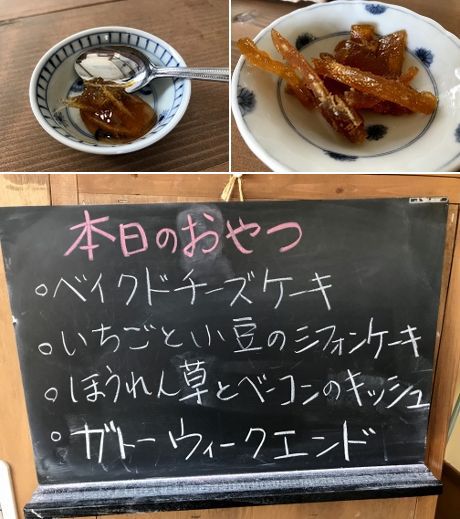 本日のおやつ
○ベイクドチーズケーキ
○いちごと小豆のシフォンケーキ
○ほうれん草とベーコンのキッシュ
○ガトーウィークエンド